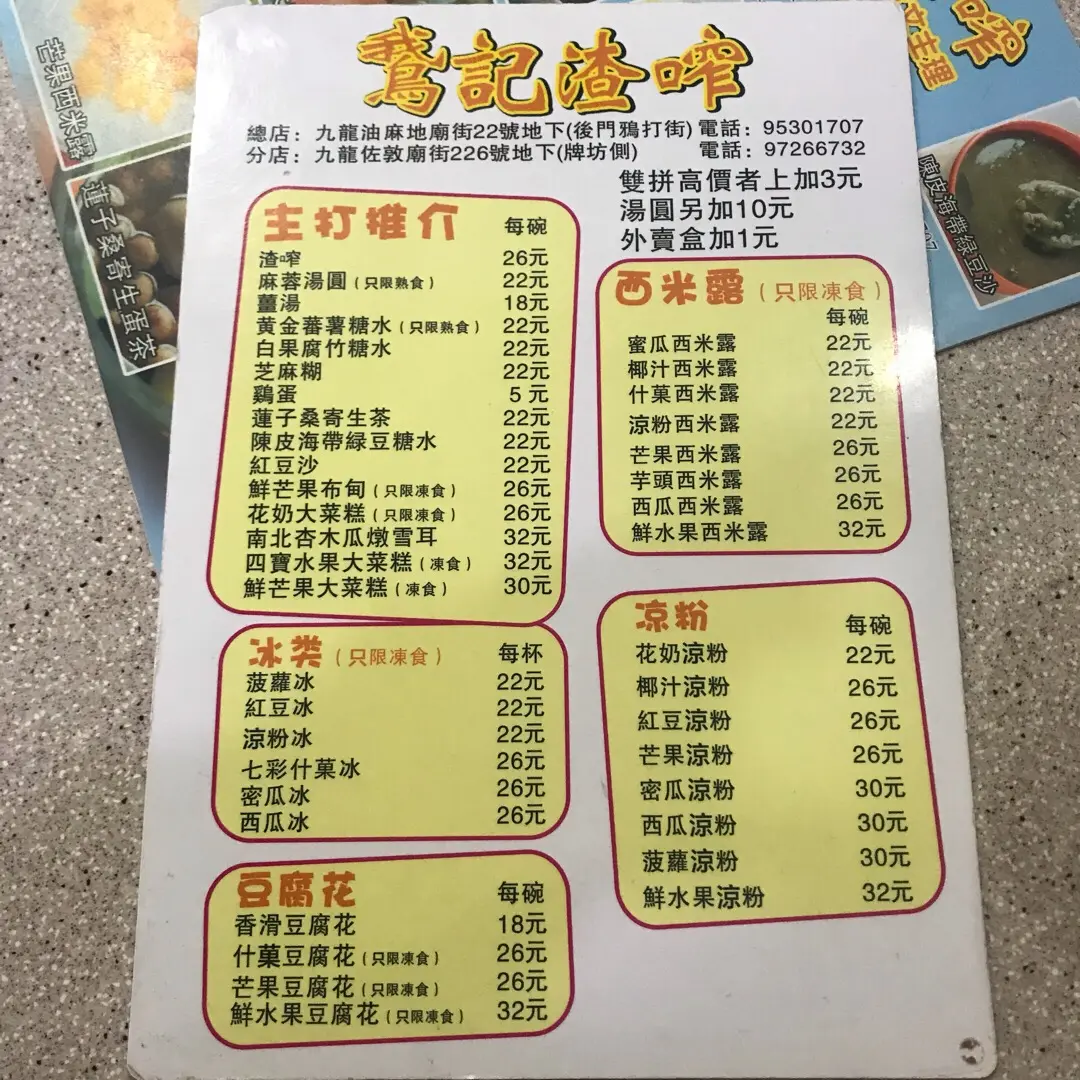 鵝記渣咋
總店：九龍油麻地廟街22號地下(後門鴉打街)電話：95301707
分店：九龍佐敦廟街226號地下(牌坊側) 電話：97266732
雙拼高價者上加3元
湯圓另加10元
外賣盒加1元
主打推介 每碗
渣咋 26元
麻蓉湯圓(只限熟食) 22元
薑湯 18元
黄金蕃薯糖水(只限熟食) 22元
白果腐竹糖水 22元
芝麻糊 22元
鷄蛋 5元
蓮子桑寄生茶 22元
陳皮海帶緑豆糖水 22元
紅豆沙 22元
鮮芒果布甸(只限凍食) 26元
花奶大菜糕(只限凍食) 26元
南北杏木瓜燉雪耳 32元
四寶水果大菜糕(凍食) 32元
鮮芒果大菜糕(凍食) 30元
冰类(只限凍食) 每杯
菠蘿冰 22元
紅豆冰 22元
涼粉冰 22元
七彩什菓冰 26元
密瓜冰 26元
西瓜冰 26元
豆腐花 每碗
香滑豆腐花 18元
什菓豆腐花(只限凍食) 26元
芒果豆腐花(只限凍食) 26元
鮮水果豆腐花(只限凍食) 32元
西米露(只限凍食)
每碗
蜜瓜西米露 22元
椰汁西米露 22元
什菓西米露 22元
涼粉西米露 22元
芒果西米露 26元
芋頭西米露 26元
西瓜西米露 26元
鮮水果西米露 32元
凉粉 每碗
花奶涼粉 22元
椰汁涼粉 26元
紅豆涼粉 26元
芒果涼粉 26元
密瓜涼粉 30元
西瓜涼粉 30元
菠蘿涼粉 30元
鮮水果涼粉 32元
芒果西米露
蓮子桑寄生蛋茶
陳皮海帶緑豆沙